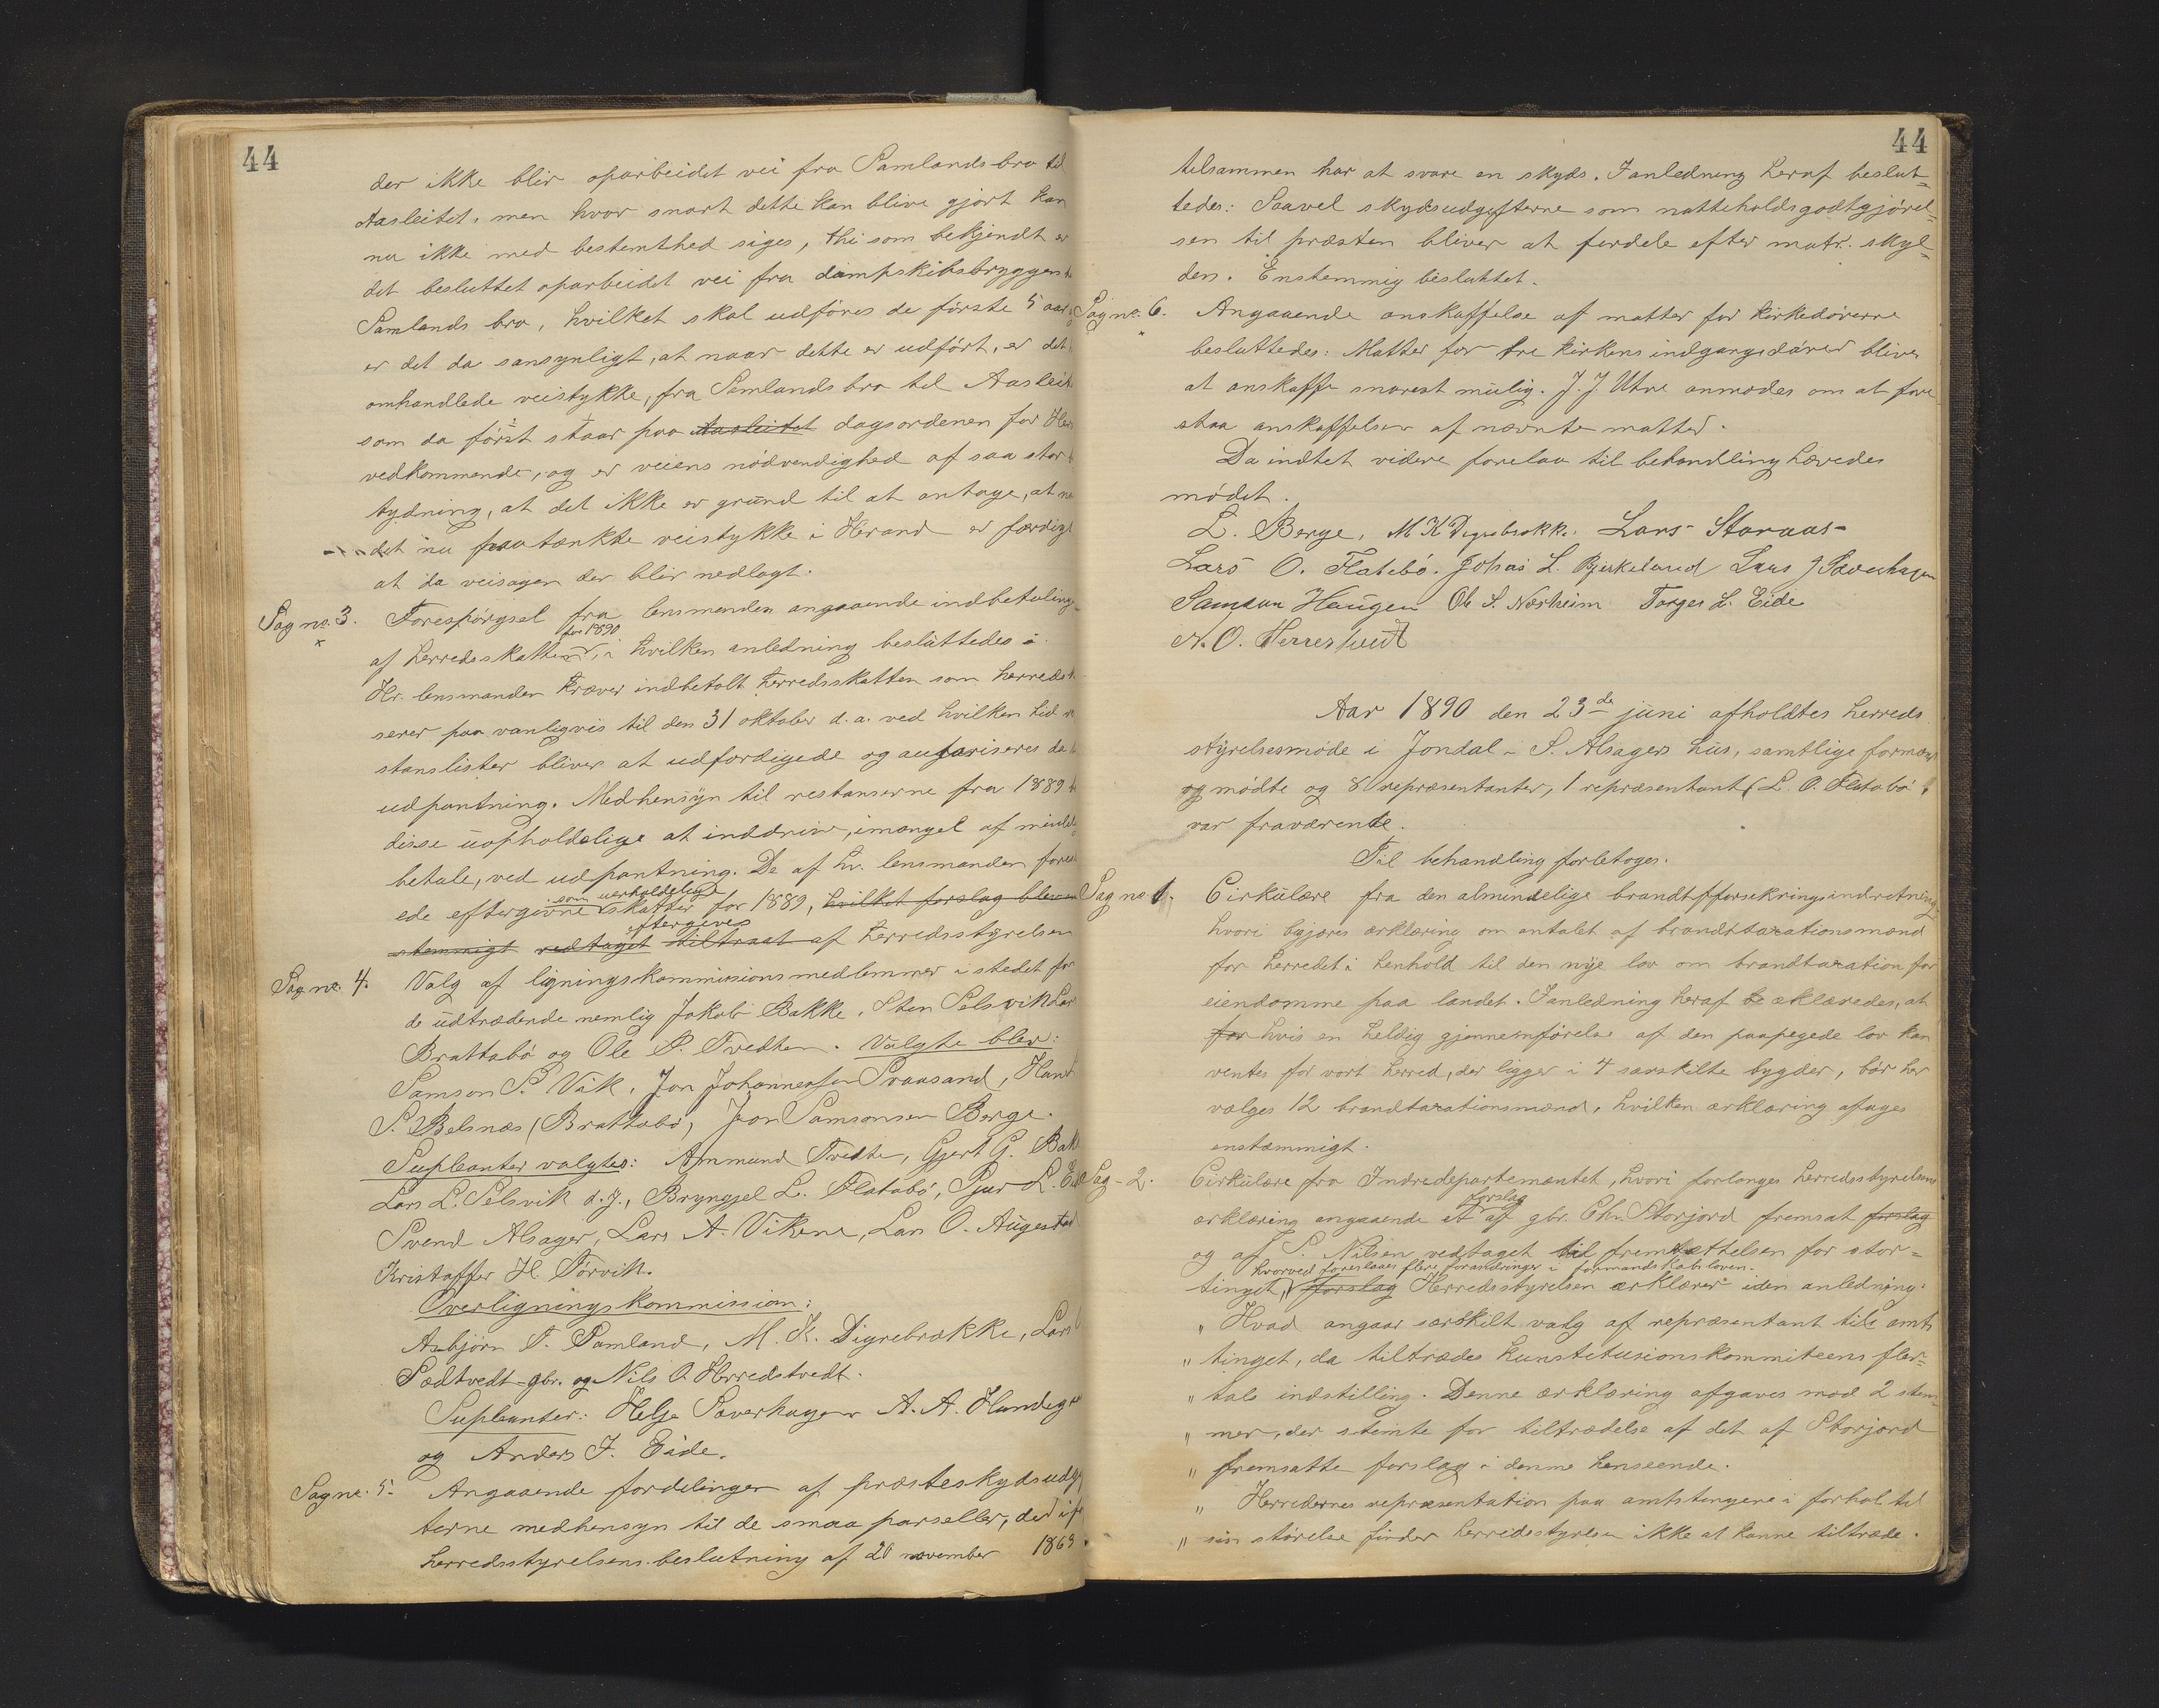 44
der ikke blir oparbeidet vei fra Samlandsbro til
Aasleitet, men hvor snart dette kan blive gjort kan
nu ikke med bestemthed siges, thi som bekjendt er
det besluttet oparbeidet vei fra dampskibsbryggen
Samlands bro, hvilket skal udföres de förste 5 aar,
er det da sansynligt, at naar dette er udfört, er det
omhandlede veistykke, fra Samlands bro til Aasleit
som da först staar paa Aasleitet dagsordenen for Her
vedkommende, og er veiens nödvendighed af saa stor
tydning, at det ikke er grund til at antage, at
det nu paatænkte veistykke i Herand er færdigt
at da veisagen der blir nedlagt.
Sag no. 3. Forespörgsel fra lensmanden angaaende indbetaling
af herredsskatten for 1890, i hvilken anledning besluttedes:
Hr. lensmanden kræver indbetalt herredsskatten som herreds
serer paa vanligvis til den 31 oktober d.a. ved hvilken tid
stanslister bliver at udfærdigede og autoriseres
udpantning. Medhensyn til restanserne fra 1889
disse uopholdelige at inddrive, imangel af mindel
betale, ved udpantning. De af hr. lensmanden fores
ede eftergivne som uerholdelige skatter for 1889, hvilket forslag bleven
stemmigt vedtaget tiltraat eftergives af herredsstyrelsen
Sag no. 4. Valg af ligningskommissionsmedlemmer i stedet for
de udtrædende nemlig Jakob Bakke, Sten Selsvik Lars
Brattabö og Ole P. Tvedten. Valgte blev:
Samson S. Vik, Jon Johannessen Svaasand, Hans
S. Belsnæs (Brattabö), Jon Samsonsen Berge.
Supleanter valgtes: Ammund Tvedte, Gjert G. Bakk
Lars L. Selsvik d.y., Bryngjel L. Flatabö, Sjur L. Eid
Svend Alsager, Lars A. Vikene, Lars O. Augestad
Kristoffer H. Törvik.
Overligningskommission:
Asbjörn T. Samland, M. K. Digrebrække, Lars
Sædtvedt gbr. og Nils O Herredstvedt.
Supleanter: Helje Saverhagen A. A. Handeg
og Anders J. Eide.
Sag no. 5. Angaaende fordelingen af præsteskydsudg
terne medhensyn til de smaa parseller, der if
herredsstyrelsens beslutning af 20 november 1863
44
tilsammen har at svare en skyds. I anledning heraf beslut-
tedes: Saavel skydsudgifterne som natteholdsgodtgjörel-
sen til præsten bliver at fordele efter matr. skyl-
den. Enstemmig besluttet.
Sag no. 6. Angaaende anskaffelse af matter for kirkedörerne
besluttedes: Matter for tre kirkens indgangsdörer bliver
at anskaffe snarest mulig. J. J Utne anmodes om at fore
staa anskaffelsen af nævnte matter.
Da indtet videre forelaa til behandling hævedes
mödet.
L. Berge, M K Digrebrække. Lars Storaas
Lars O. Flatebö. Johas L. Bjerkeland Lars J Saverhagen
Samson Haugen Ole S. Nærheim Torger L. Eide
N. O. Herrestvedt
Aar 1890 den 23de juni afholdtes herreds
styrelsesmøde i Jondal i S. Alsagers hus, samtlige formænd
og mödte og 8 repræsentanter, 1 repræsentant (L. O. Flatabö)
var fraværente.
Til behandling foretoges.
Sag no 1. Cirkulære fra den almindelige brandtforsikringsindretning
hvori bejæres ærklæring om antalet af brandttaxationsmænd
for herredet i henhold til den nye lov om brandtaxation for
eiendomme paa landet. I anledning heraf be ærklæredes, at
for hvis en heldig gjennemförelse af den paapegede lov kan
ventes for vort herred, der ligger i 4 særskilte bygder, bör her
vælges 12 brandtaxationsmænd, hvilken ærklæring afages
enstæmmigt.
Sag - 2. Cirkulære fra Indredepartemantet, hvori forlanges herredsstyrelsens
ærklæring angaaende et forslag af gbr. Chr. Storjord fremsat forslag
og af S. Nilsen vedtaget til fremsættelsen for stor-
tinget, hvorved foreslaaes flere forandringer i formandskabsloven. forslag Herredsstyrelsen ærklærer iden anledning:
" Hvad angaar særskilt valg af repræsentant til amts
" tinget, da tiltrædes kunstitusionskommiteens fler-
" tals indstilling. Denne ærklæring afgaves mod 2 stem-
" mer, der stemte for tiltrædelse af det af Storjord
" fremsatte forslag i denne henseende.
" Herredernes repræsentation paa amtstingene i forhol til
" sin störelse finder herredsstyrelsen ikke at kunne tiltræde.